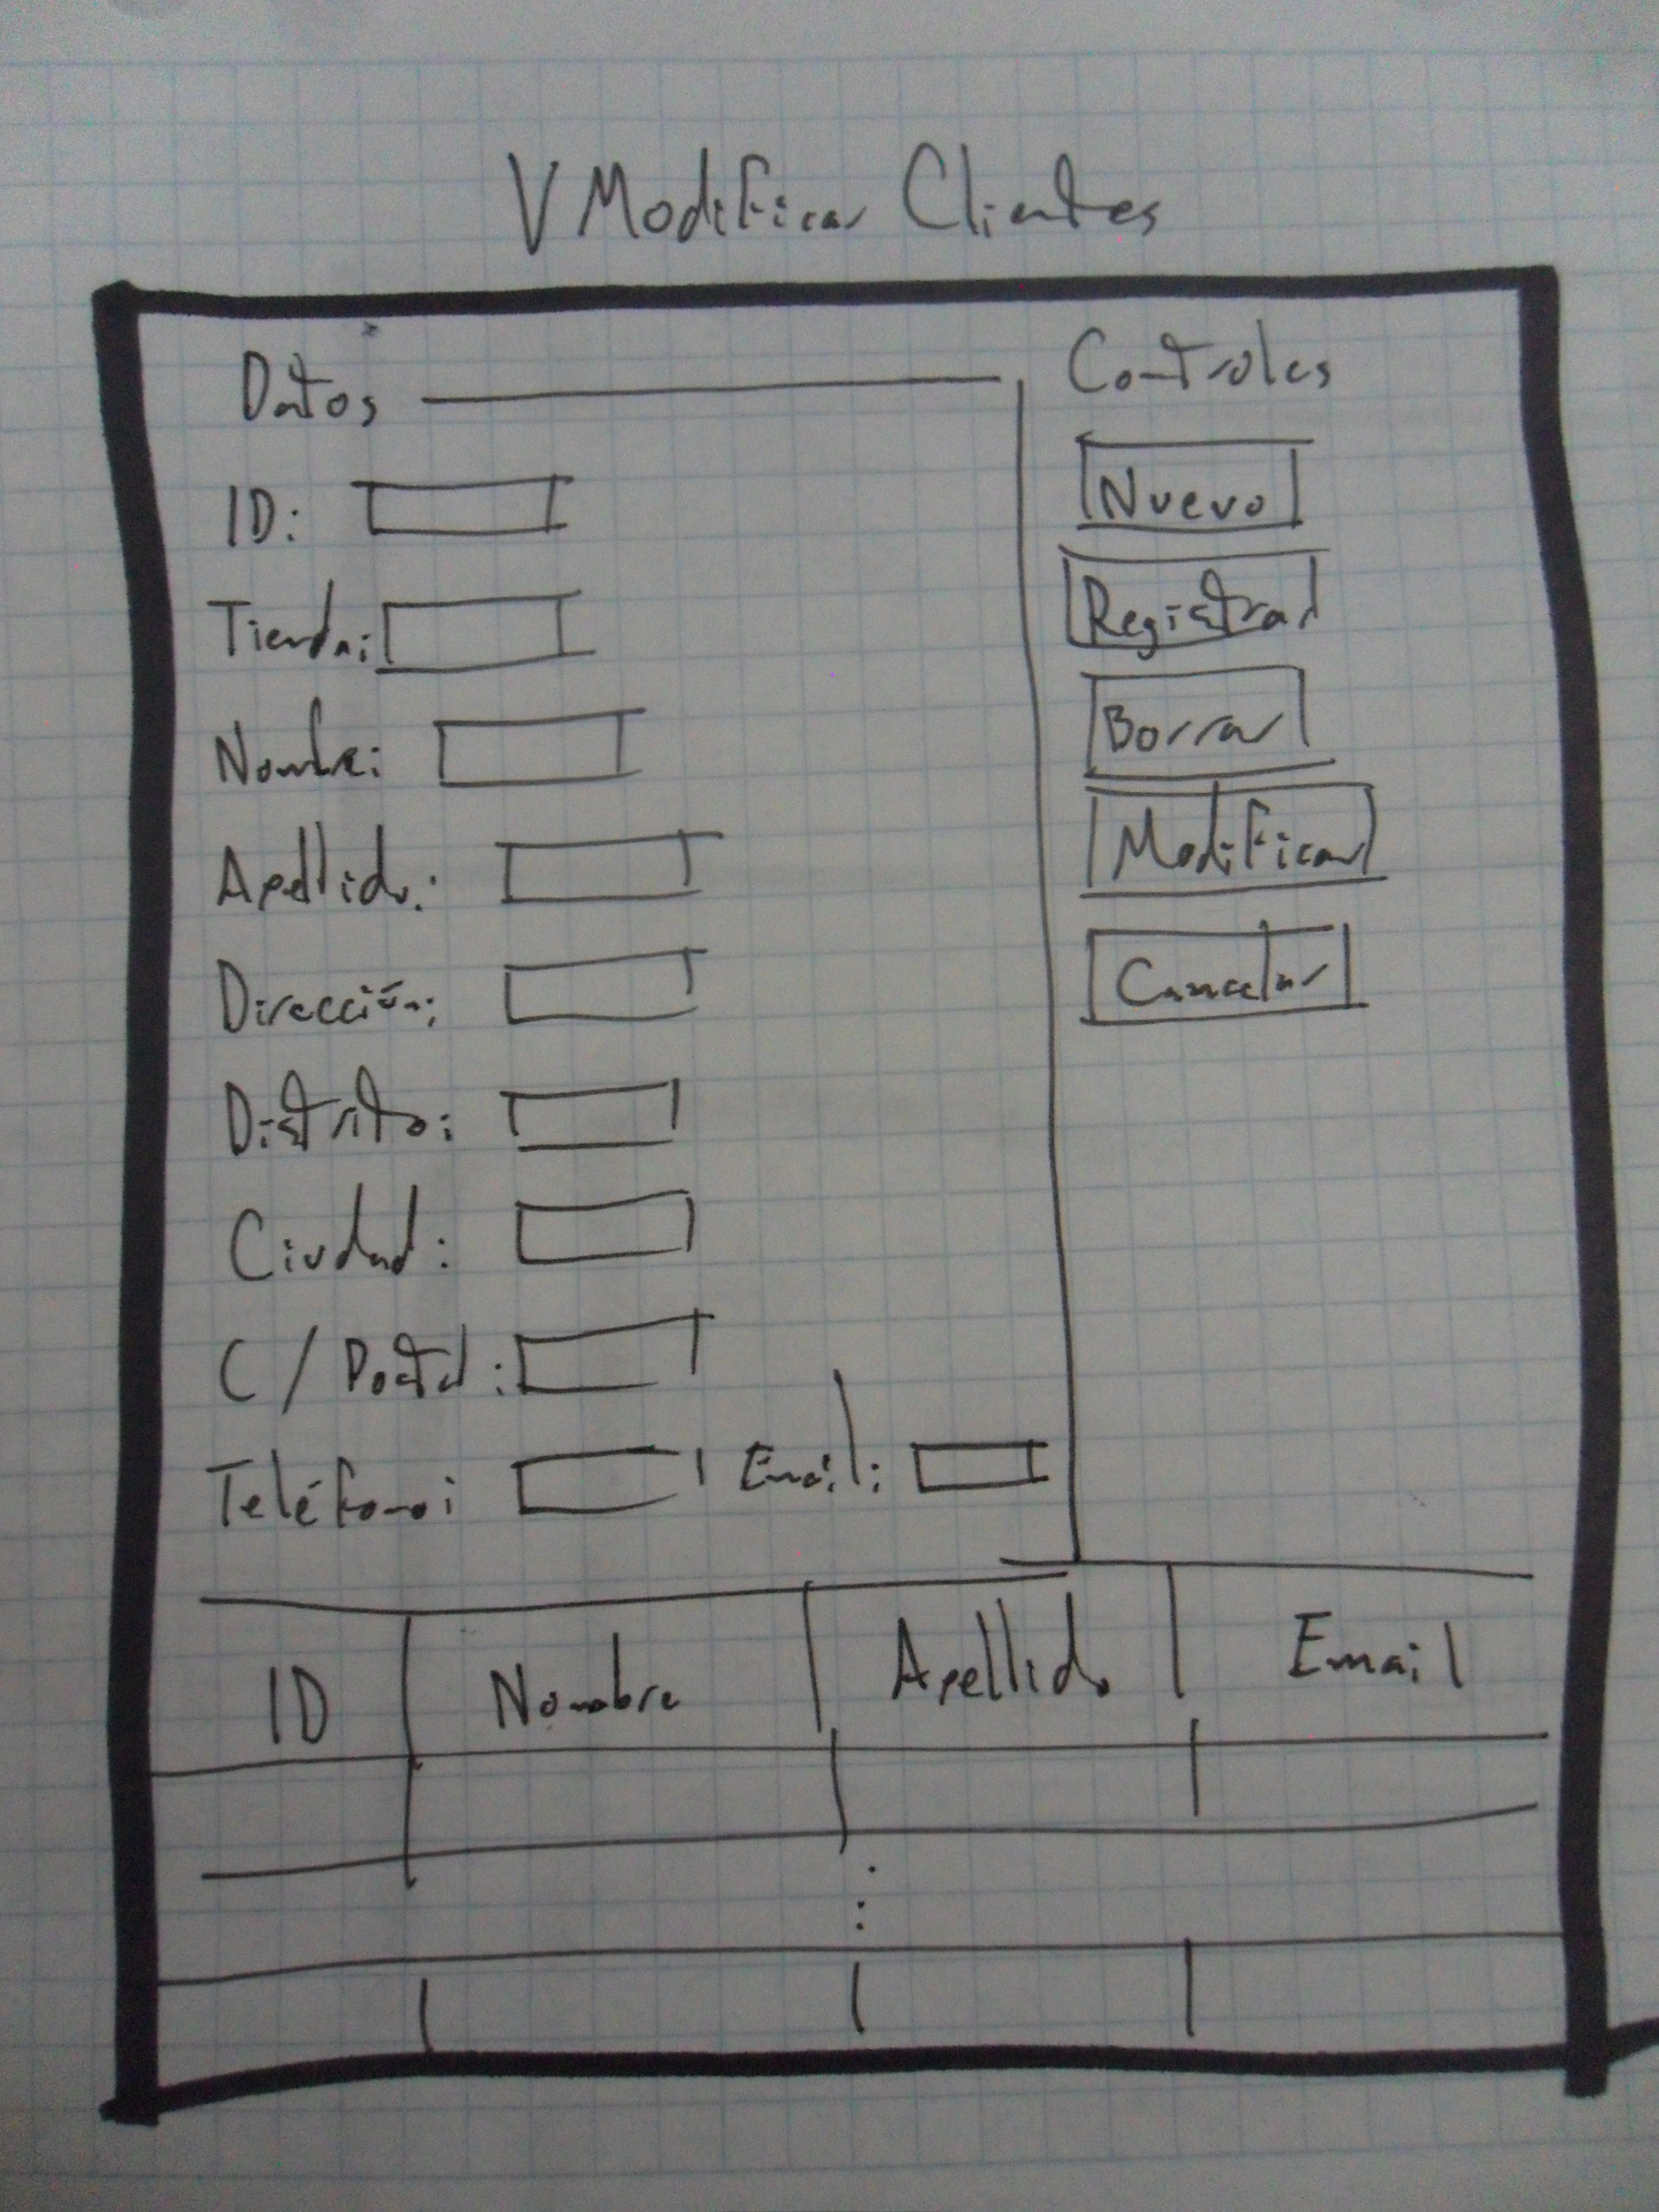 V Modificar Clientes
Datos
ID:
Tienda:
Nombre:
Apellido:
Dirección:
Distrito:
Ciudad:
C / Postal:
Teléfono: Email:
Controles
Nuevo
Registrar
Borrar
Modificar
Cancelar
ID Nombre Apellido Email